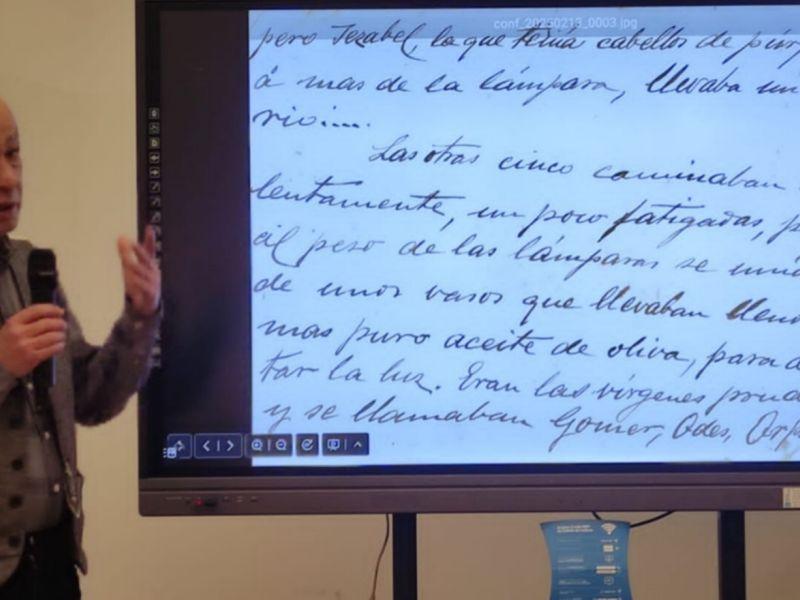 conf_20250213_0003.jpg
pero Jezabel, la que tenía cabellos de púrp
á mas de la lámpara, llevaba un
rio....
Las otras cinco caminaban
lentamente, un poco fatigadas, p
al peso de las lámparas se unía
de unos vasos que llevaban llen
mas puro aceite de oliva, para a
tar la luz. Eran las vírgenes prud
y se llamaban Gomer, Odes, Orp